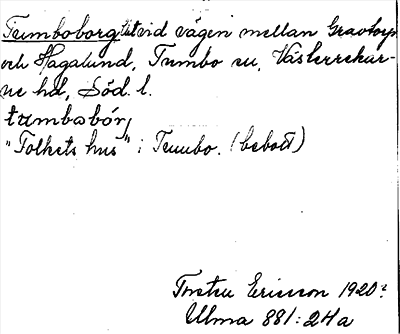 Tumboborg lht vid vägen mellan Gravtorp
och Hagalund, Tumbo sn, Västerrekar-
ne hd, Söd. l.
tumbobórj
"Folkets hus" i Tumbo. (bebott)
Torsten Ericsson 1920?
Ulma 881:24a